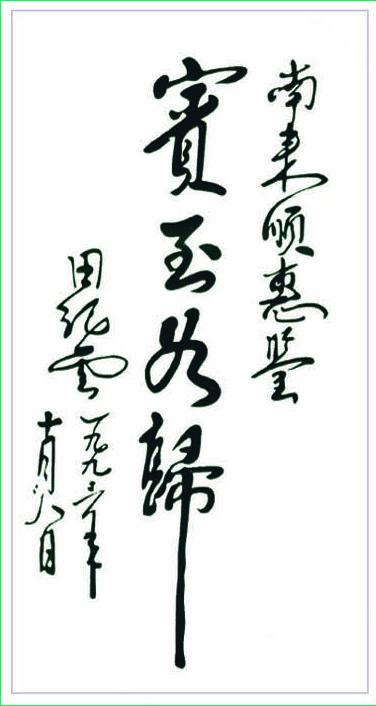 南来順惠鑒
賓至如歸
田纪雲
一九九六年
十月八日